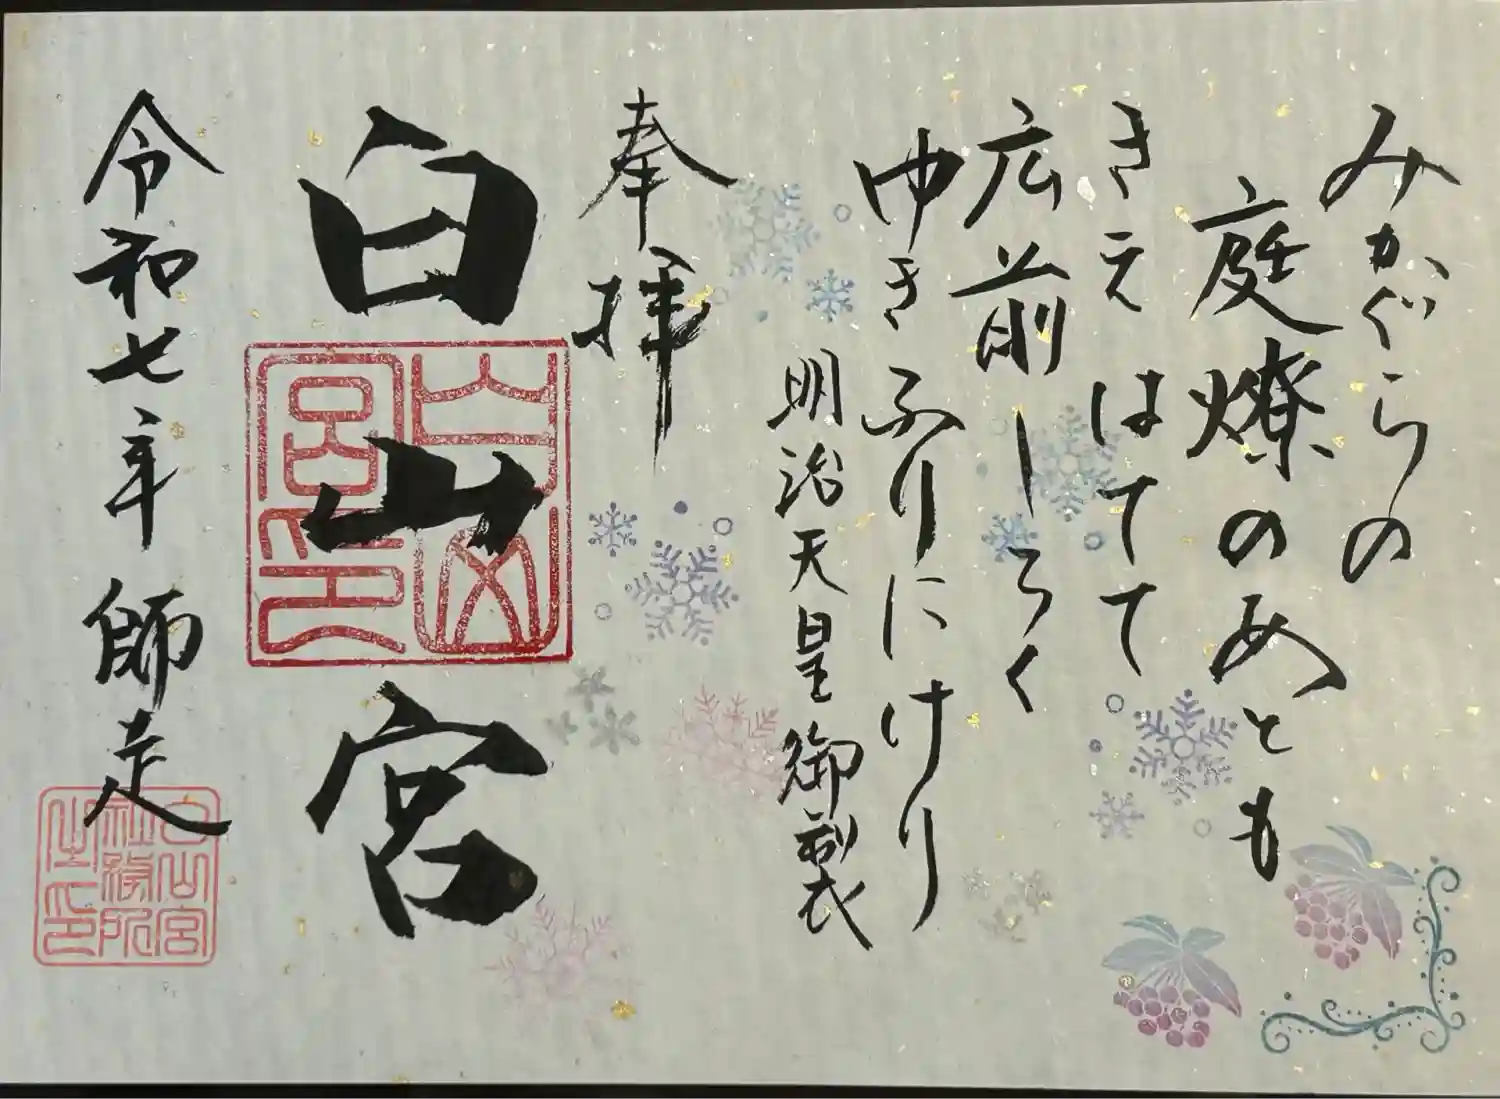 みかぐらの
庭燎のめとも
きえはてて
広前しろく
ゆきふりにけり
明治天皇御製
奉拝
白山宮
令和七年師走
白山宮
社務所
之印